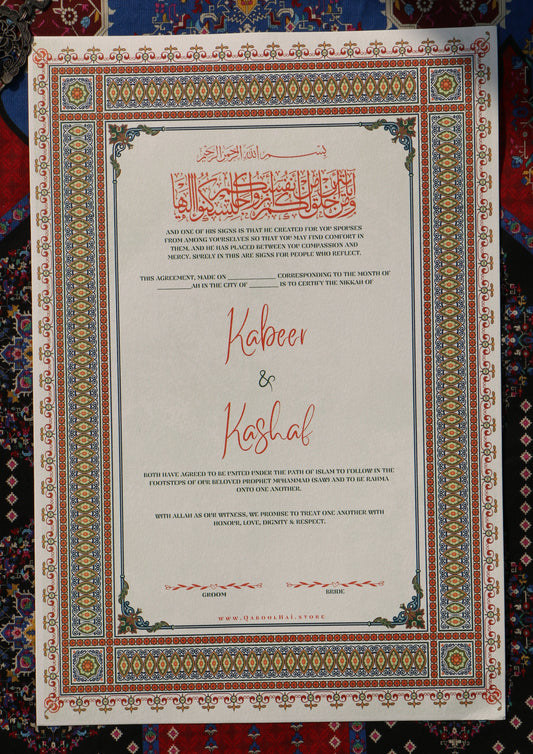 بسم الله الرحمن الرحيم
AND ONE OF HIS SIGNS IS THAT HE CREATED FOR YOU SPOUSES
FROM AMONG YOURSELVES SO THAT YOU MAY FIND COMFORT IN
THEM. AND HE HAS PLACED BETWEEN YOU COMPASSION AND
MERCY. SURELY IN THIS ARE SIGNS FOR PEOPLE WHO REFLECT.
THIS AGREEMENT, MADE ON ______________ CORRESPONDING TO THE MONTH OF
__________,AH IN THE CITY OF _________ IS TO CERTIFY THE NIKKAH OF
Kabeer
&
Kashaf
BOTH HAVE AGREED TO BE UNITED UNDER THE PATH OF ISLAM TO FOLLOW IN THE
FOOTSTEPS OF OUR BELOVED PROPHET MUHAMMAD (SAW) AND TO BE RAHMA
ONTO ONE ANOTHER.
WITH ALLAH AS OUR WITNESS, WE PROMISE TO TREAT ONE ANOTHER WITH
HONOUR, LOVE, DIGNITY & RESPECT.
GROOM BRIDE
WWW.QABOOLHAI.STORE